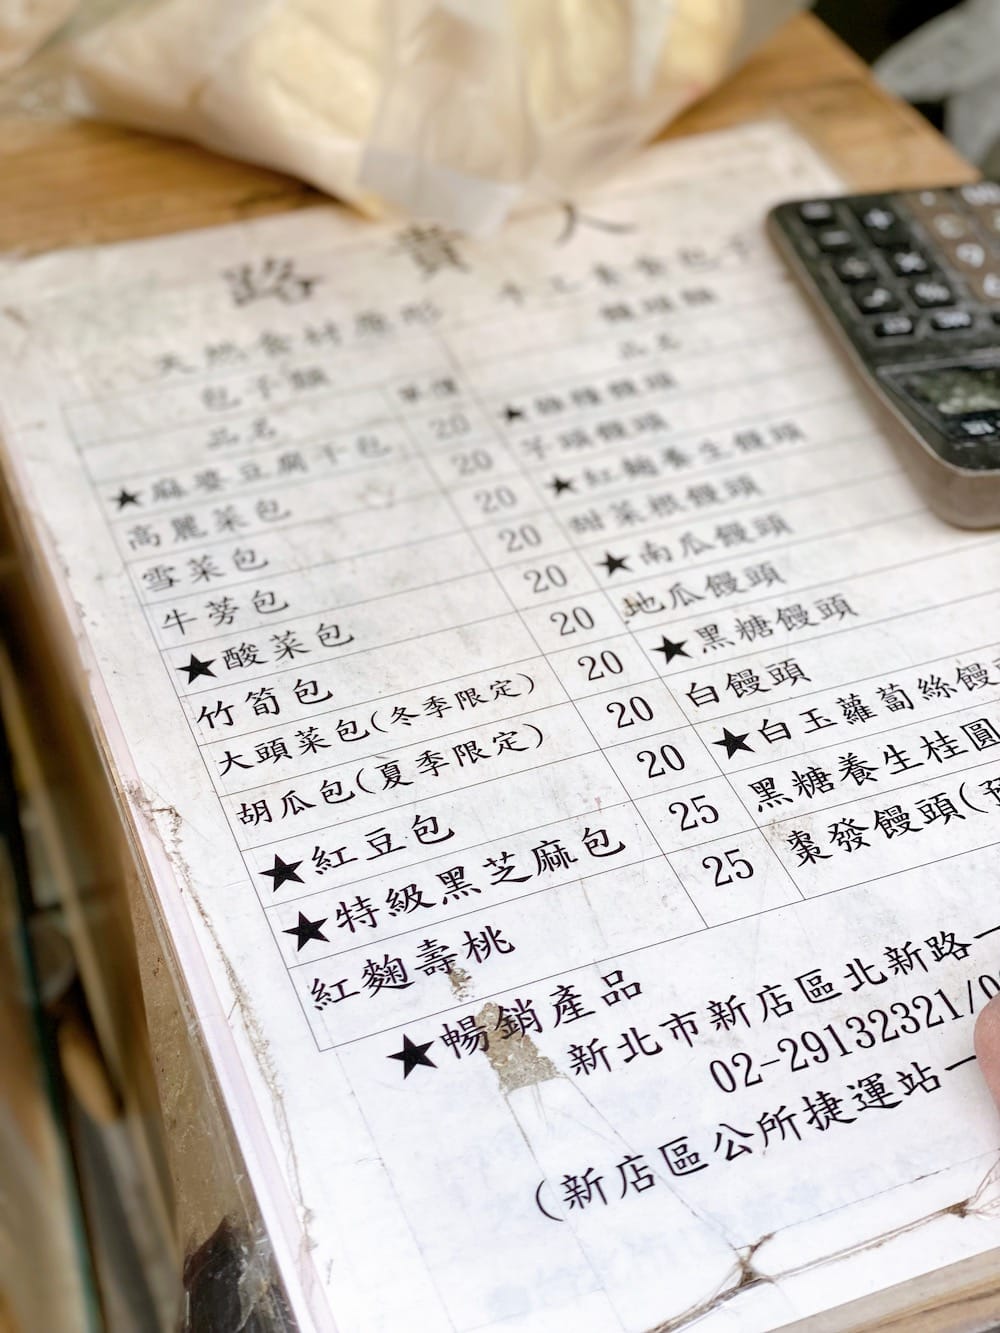 路 貴 人
天然食材原形 手工素食包子
包子類 饅頭類
品名 單價 品名
★麻婆豆腐干包 20 ★雜糧饅頭
高麗菜包 20 芋頭饅頭
雪菜包 20 ★紅麴養生饅頭
牛蒡包 20 甜菜根饅頭
★酸菜包 20 ★南瓜饅頭
竹筍包 20 地瓜饅頭
大頭菜包(冬季限定) 20 ★黑糖饅頭
胡瓜包(夏季限定) 20 白饅頭
★紅豆包 20 ★白玉蘿蔔絲饅
★特級黑芝麻包 25 黑糖養生桂圓
紅麴壽桃 25 棗發饅頭(
★暢銷產品
新北市新店區北新路一
02-29132321/0
(新店區公所捷運站一